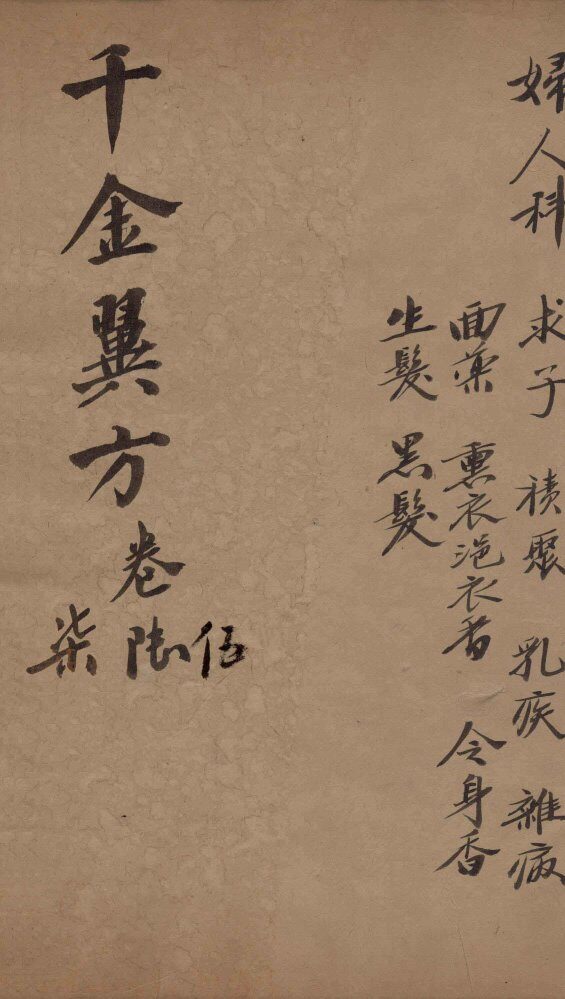 婦人科 求子 積聚 乳疾 雜病
面藥 熏衣浥衣香 令身香
生髮 黑髮
千金翼方卷
伍
陸
柒